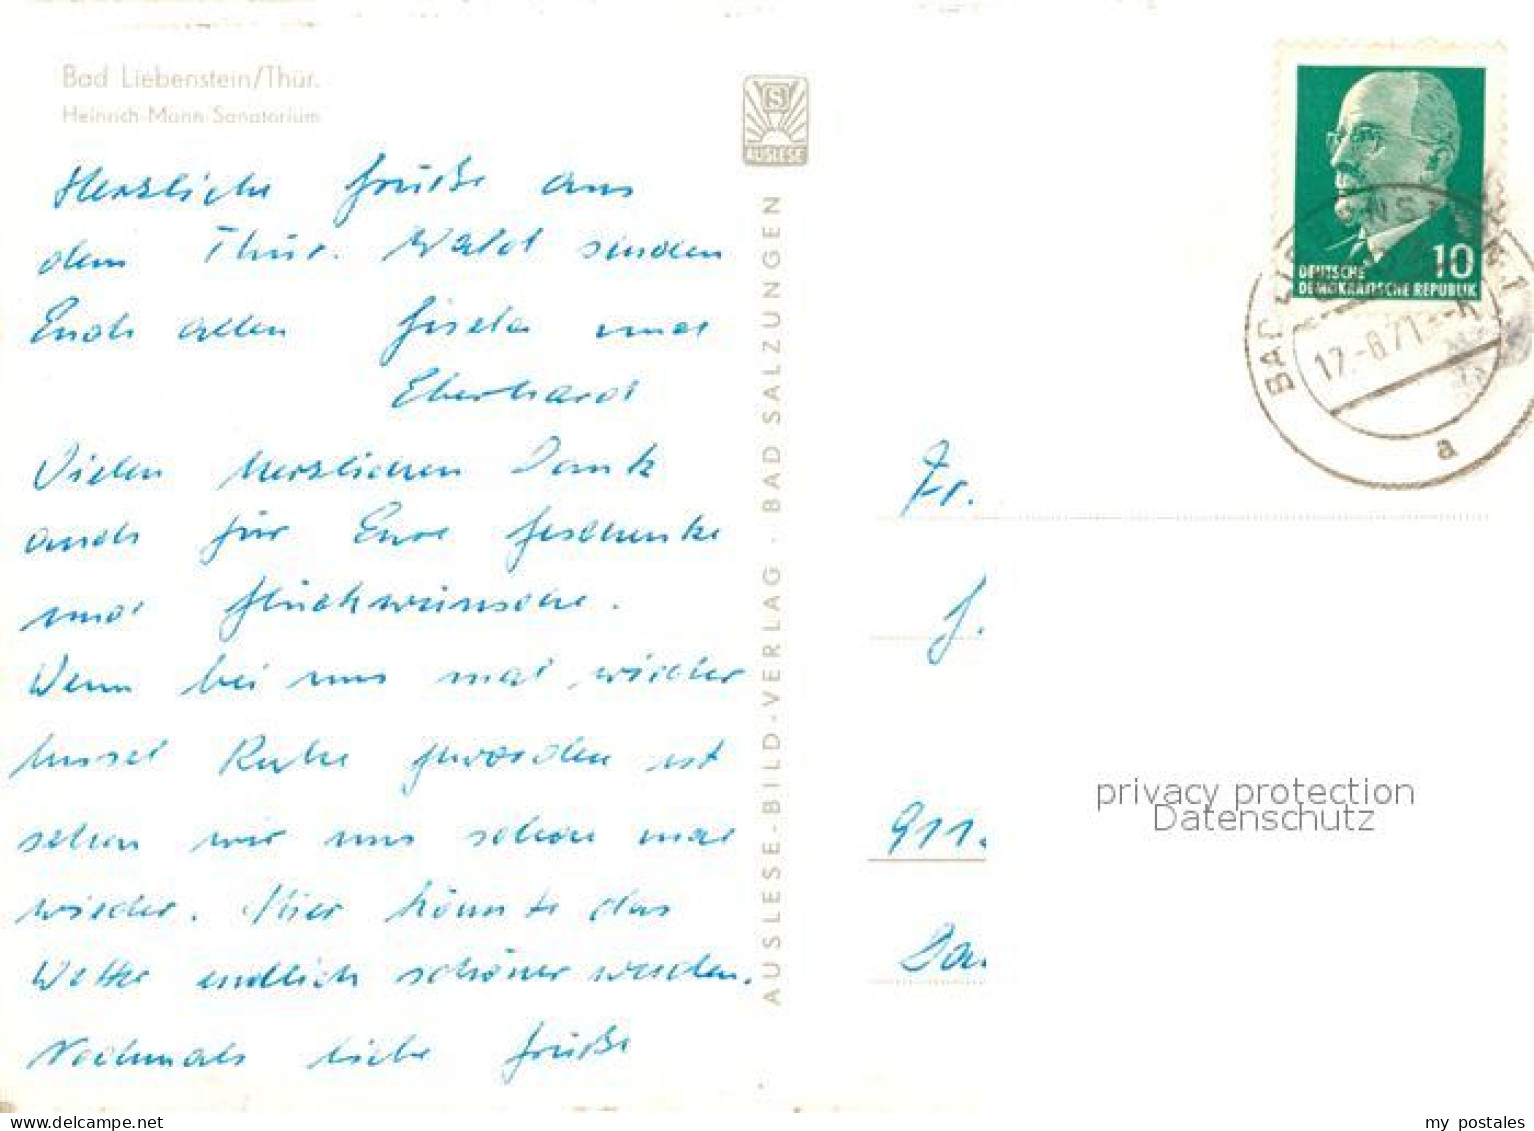 Bad Liebenstein/Thür.
Heinrich-Mann-Sanatorium
Herzliche Grüße aus
dem Thür. Wald senden
Euch allen Gisela und
Eberhard
Vielen herzlichen Dank
auch für Eure Geschenke
und Glückwünsche.
Wenn bei uns mal wieder
bissel Ruhe geworden ist
sehen wir uns schon mal
wieder. Hier könnte das
Wetter endlich schöner werden.
Nochmals liebe Grüße
S
AUSLESE
AUSLESE-BILD-VERLAG · BAD SALZUNGEN
10
DEUTSCHE
DEMOKRATISCHE REPUBLIK
17.-8.71
a
Fr.
G.
911
privacy protection
Datenschutz
my postales